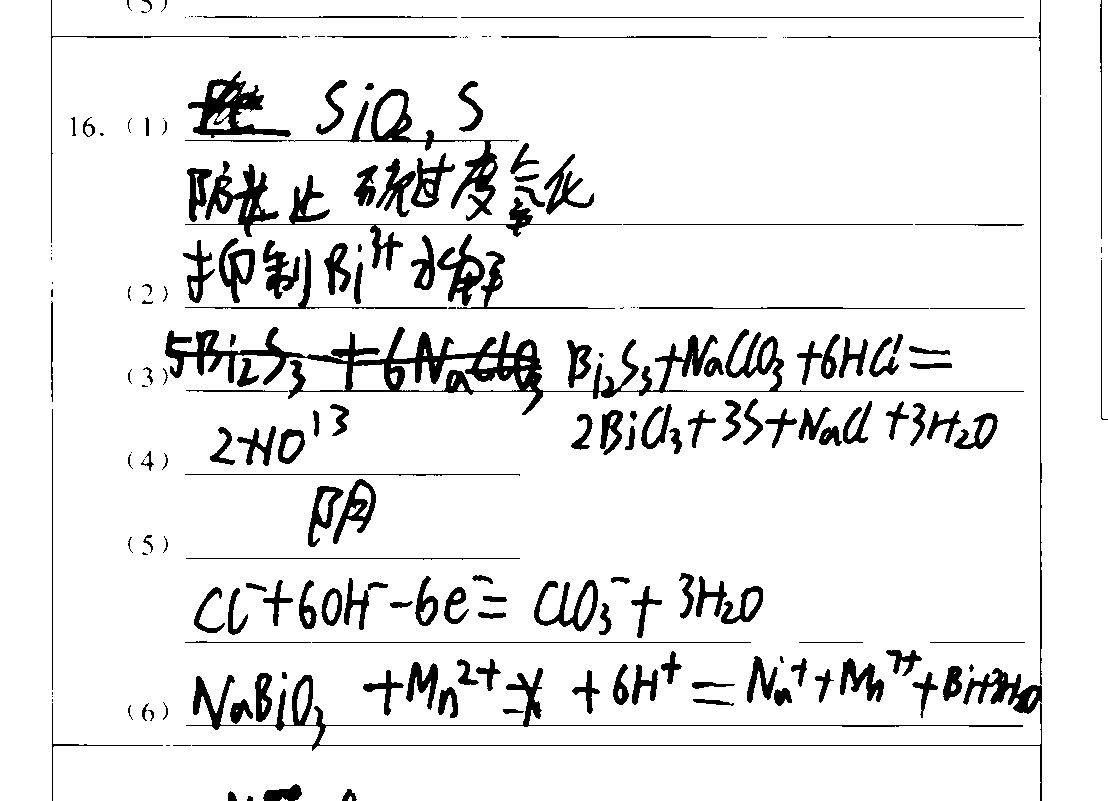 (5)
16. (1) SiO₂, S
防止 硫过度氧化
(2) 抑制Bi³⁺水解
(3) 5Bi₂S₃ + 6NaClO₃ Bi₂S₃+NaClO₃+6HCl=
2BiCl₃+3S+NaCl+3H₂O
(4) 2×10¹³
(5) 阴
Cl⁻+6OH⁻-6e⁻= ClO₃⁻+ 3H₂O
(6) NaBiO₃ +Mn²⁺ +6H⁺ = Na⁺+Mn⁷⁺+Bi+3H₂O